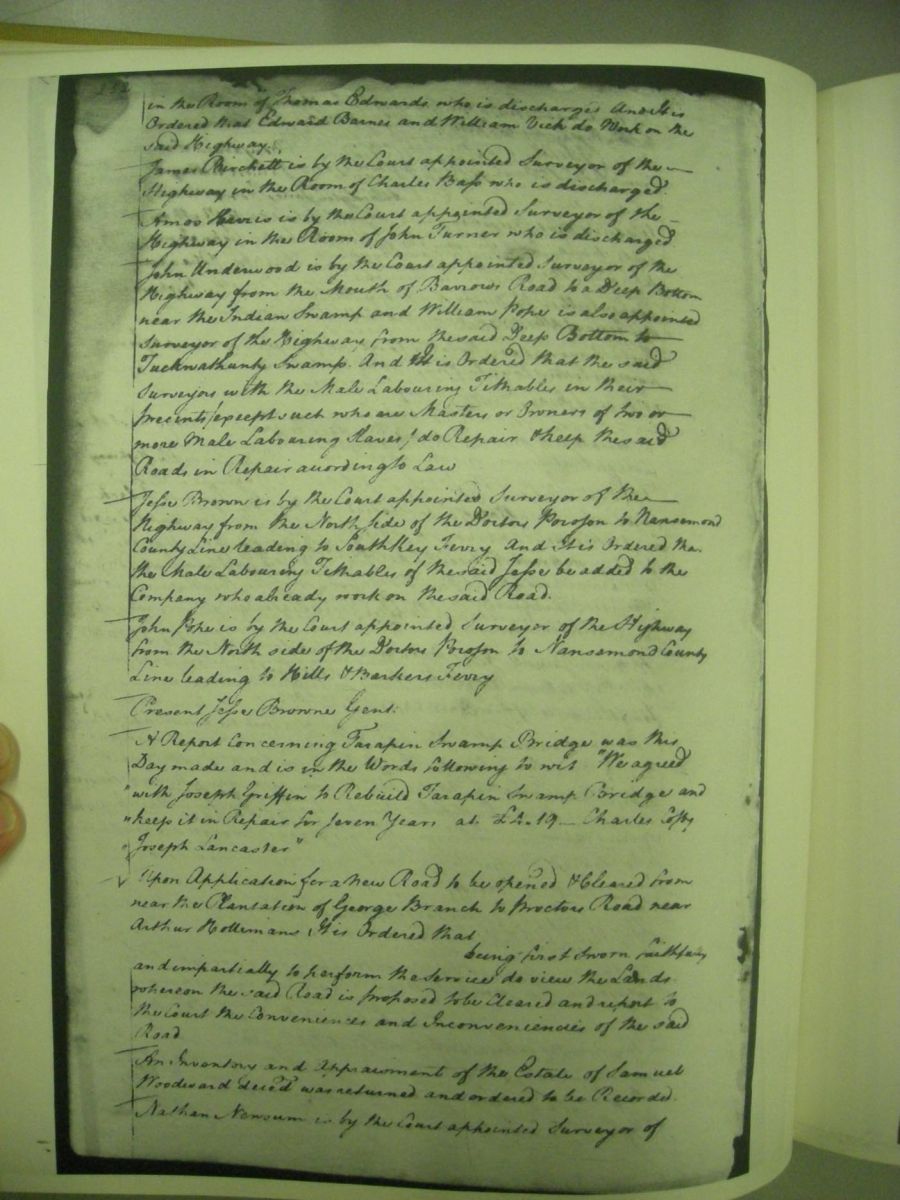 in the Room of Thomas Edwards who is discharged And It is
Ordered that Edward Barnes and William Vick do Work on the
said Highway.
James Birchett is by the Court appointed Surveyor of the
Highway in the Room of Charles Bass who is discharged
Amos Harris is by the Court appointed Surveyor of the
Highway in the Room of John Turner who is discharged.
John Underwood is by the Court appointed Surveyor of the
Highway from the Mouth of Barrows Road to a Deep Bottom
near the Indian Swamp and William Pope is also appointed
Surveyor of the Highway from the said Deep Bottom to
Swamp. And it is Ordered that the said
Surveyors with the Male Labouring Tithables in their
Precincts (except such who are Masters or Owners of two or
more Male Labouring Slaves) do Repair & keep the said
Roads in Repair according to Law
Jesse Brown is by the Court appointed Surveyor of the
Highway from the North Side of the Doctors Poroson to Nansemond
County Line leading to South Key Ferry And It is Ordered tha.
the Male Labouring Tithables of the said Jesse be added to the
Company who already work on the said Road.
John Pope is by the Court appointed Surveyor of the Highway
from the North side of the Doctors Poroson to Nansemond County
Line leading to Hills & Barkers Ferry
Present Jesse Browne Gent:
A Report Concerning Tarapin Swamp Bridge was this
Day made and is in the Words following to wit "We agreed
"with Joseph Griffin to Rebuild Tarapin Swamp Bridge and
"keep it in Repair for seven Years at £4.19 Charles
"Joseph Lancaster"
Upon Application for a New Road to be opened & Cleared from
near the Plantation of George Branch to Proctors Road near
Arthur Hollimans, It is Ordered that
being first Sworn faithfully
and impartially to perform the Service do view the Lands
whereon the said Road is proposed to be Cleared and report to
the Court the Conveniences and Inconveniencies of the said
Road
An Inventory and Appraisment of the Estate of Samuel
Woodward deced was returned and ordered to be Recorded.
Nathan Newsum is by the Court appointed Surveyor of